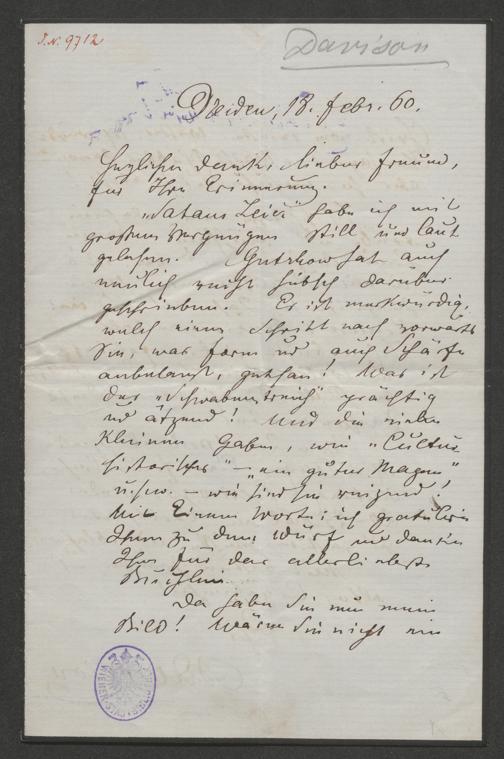 I.N. 9712
Davison
Dresden, 18. Febr. 60.
Herzlichen Dank, lieber Freund,
für Ihre Erinnerung.
„Satans Leier" habe ich mit
großem Vergnügen still und laut
gelesen. Gutzkow hat auch
neulich recht hübsch darüber
geschrieben. Es ist merkwürdig,
welch einen Schritt nach vorwärts
Sie, was Form und auch Schärfe
anbelangt, gethan! Was ist
der „Schwabenstreich" prächtig
und ätzend! Und die vielen
kleinen Gaben, wie „Cultur
historisches" – „ein guter Magen"
u.s.w. – wie sind sie reizend!
Mit Einem Worte: ich gratulire
Ihnen zu dem Wurf und danke
Ihnen für das allerliebste
Büchlein.
Da haben Sie nun mein
Bild! Wären Sie nicht ein